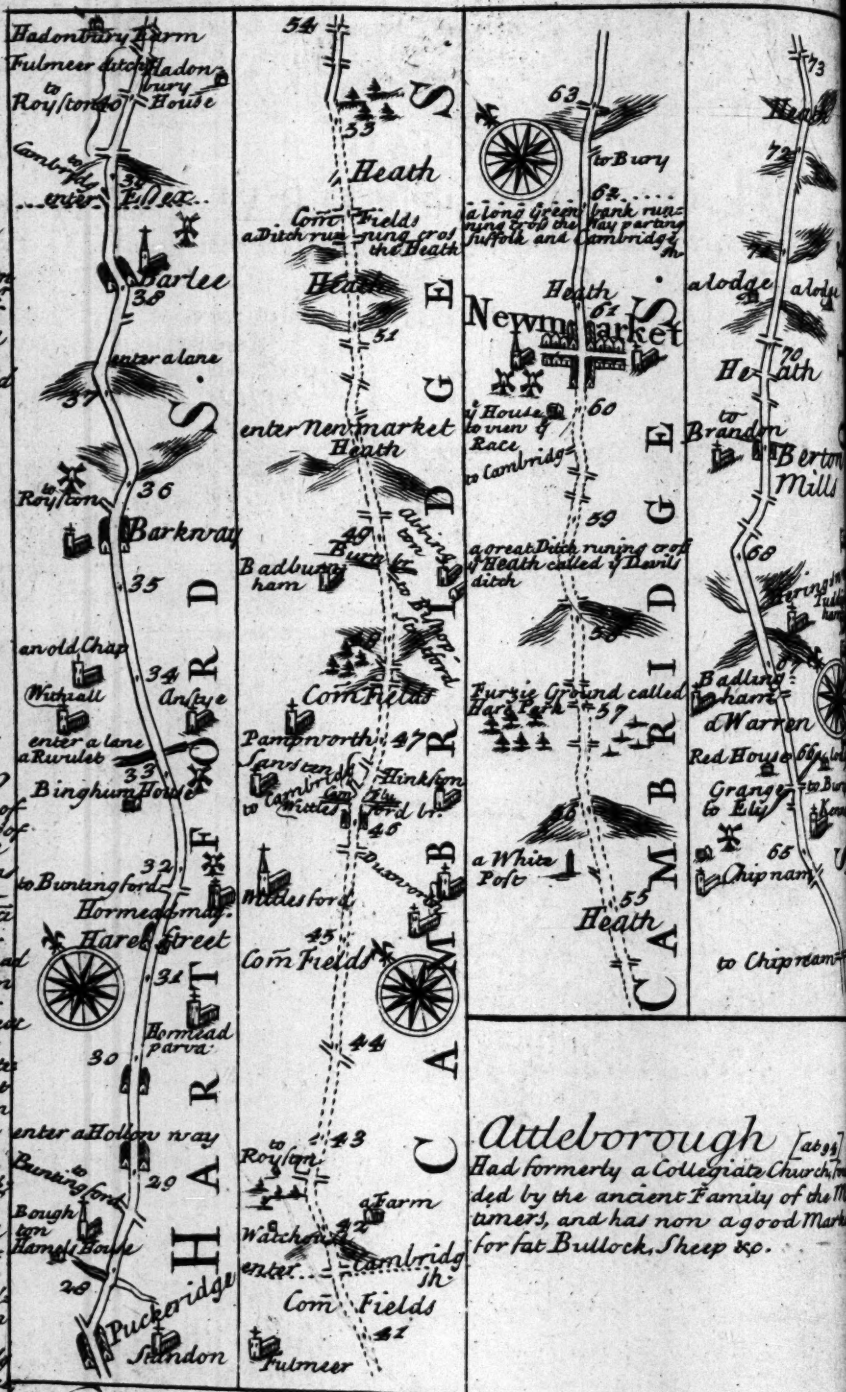 Hadonbury Farm
Fulmeer ditch
Hadon=
bury
House
to
Royston
40
to
Cambridg
39
enter Essex
Barlee
38
enter a lane
37
36
to
Royston
Barkway
35
an old Chap
34
Withiall
Anstye
enter a lane
a Rivulet
33
Binghum House
32
to Buntingford
Hormead mag.
Hare Street
31
Hormead
parva
30
enter a Hollow way
to
Buntingford
29
Bough
ton
Hamels House
28
Puckeridge
Standon
HARTFORDS.
54
53
Heath
Com Fields
a Ditch run=ning cros
the Heath
Heath
51
enter Newmarket
Heath
49
Abbing
ton
Burn br.
Badburn
ham
to Bishops
Stortford
48
Com Fields
Pampworth
47
Sauston
Hinkston
to Cambridg
Wittlesford br.
46
Duxworth
Wittlesford
45
Com Fields
44
43
to
Royston
a Farm
42
Watchouse
enter Cambridg
sh.
Com Fields
41
Fulmeer
CAMBRIDGES
63
to Bury
62
a long Green bank run=
ning cros the Way parting
Suffolk and Cambridge
sh
Heath
61
Newmarket
60
y House
to view y
Race
to Cambridg
59
a great Ditch runing cross
y Heath called y Devils
ditch
58
Furzie Ground called
Hare Park
57
56
a White
Post
55
Heath
CAMBRIDGES.
73
Heath
72
71
a lodge
a lodge
70
Heath
to
Brandon
Berton
Mills
68
67
Badling
ham
a Warren
Red House
66
Grange
to Ely
65
Chipnam
to Chipnam
Attleborough [at 94]
Had formerly a Collegiate Church,
ded by the ancient Family of the
timers, and has now a good
for fat Bullock, Sheep &c.